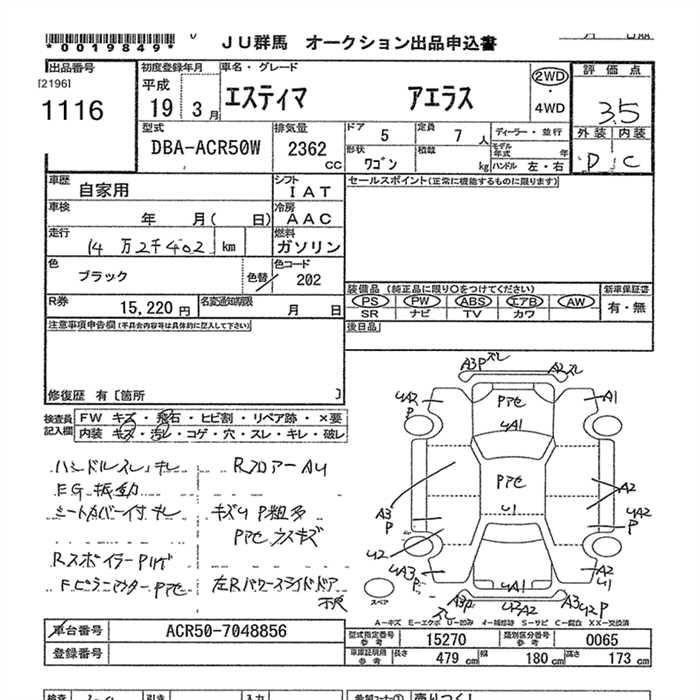 *0019849*
JU群馬 オークション出品申込書
出品番号
[2196]
1116
初度登録年月
平成
19年 3月
車名・グレード
エスティマ アエラス
2WD
・
4WD
評価点
3.5
外装 内装
D C
型式
DBA-ACR50W
排気量
2362
CC
ドア 5
定員 7 人
ディーラー・並行
モデル年式 年
形状 ワゴン
積載 kg
ハンドル 左・右
車歴 自家用
シフト IAT
セールスポイント(正常に機能するものに限ります)
車検 年 月( 日)
冷房 AAC
走行 14万2千402 km
燃料 ガソリン
色 ブラック
色替
色コード 202
装備品(純正品に限り○をつけてください)
新車保証書
PS PW ABS エアB AW
有・無
SR ナビ TV カワ
R券 15,220円
名変通知期限 月 日
後日品
注意事項申告欄(不具合内容等は具体的に記入して下さい)
修復歴 有〔箇所 〕
検査員記入欄
FW キズ・飛石・ヒビ割・リペア跡・×要
内装 キズ・汚レ・コゲ・穴・スレ・キレ・破レ
ハンドルスレ・キレ
RフロアーAU
EG振動
シートカバー付キレ
キズU P粗多
Pアセ ウスキズ
RスポイラーPハゲ
FピラーアウターPアセ
左Rパワースライドドア
不良
A3P ズレ
A2ズレ
UA2
P
Pアセ
A1
UA1
Pアセ
U1
A3
P
A2
UA2
P
U2
UA3
P
UA1
A2
U1
A3P
ズレ
U2A2
A3U2P
スペア
A-キズ E-エクボ U-凹み W-補修跡 S-サビ C-腐食 XX-交換済
車台番号 ACR50-7048856
登録番号
型式指定番号 参考 15270
類別区分番号 参考 0065
車庫証明用 参考
長さ 479 cm
幅 180 cm
高さ 173 cm